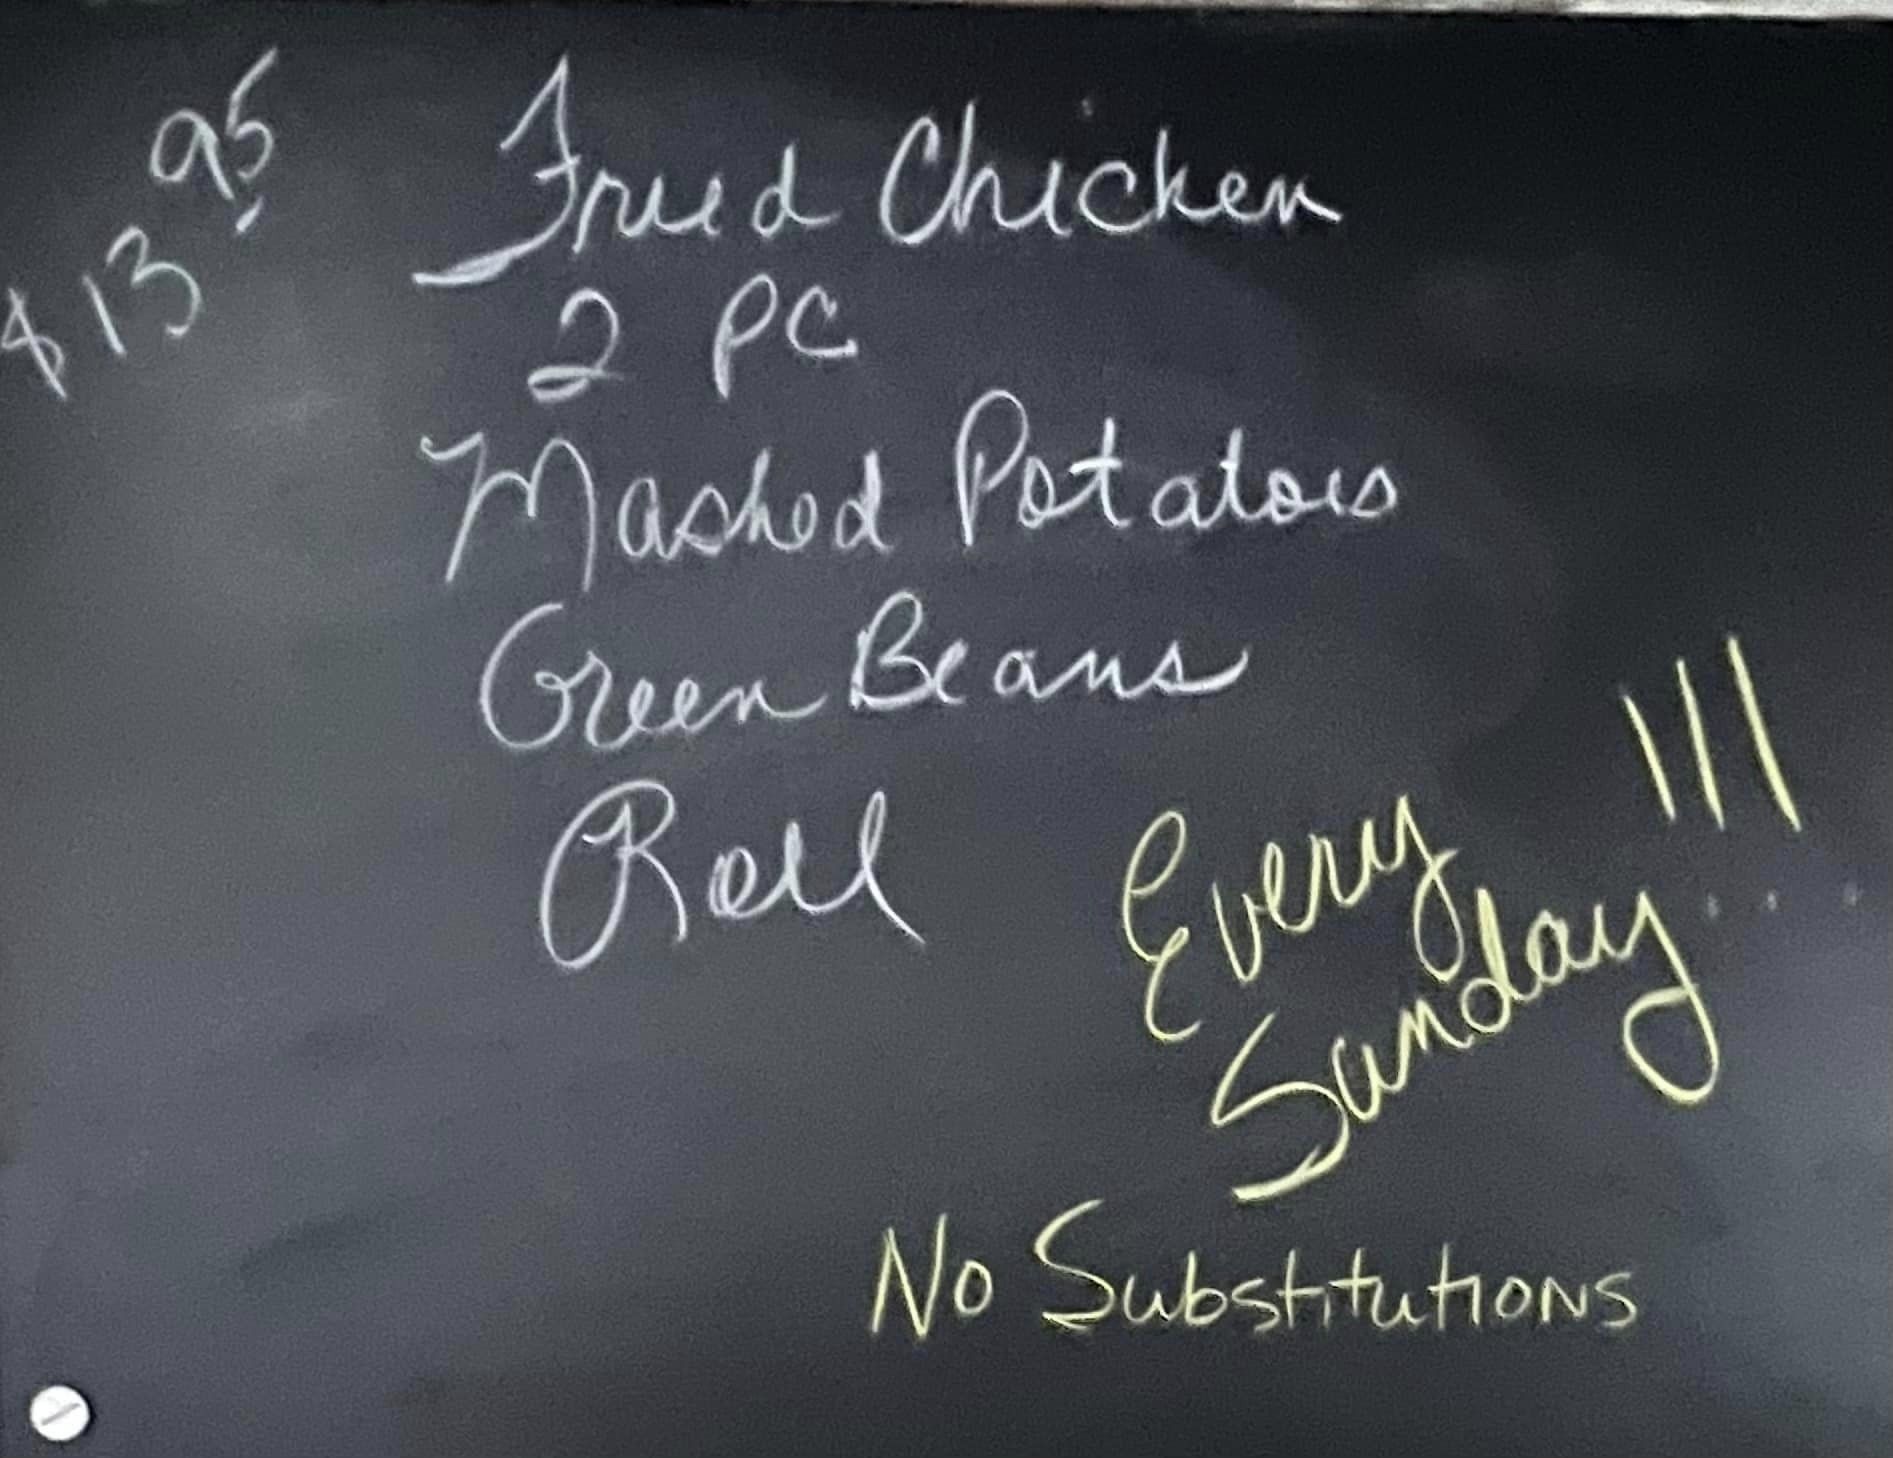 $13.95
Fried Chicken
2 PC
Mashed Potatoes
Green Beans
Roll
Every
Sunday!!!
No Substitutions